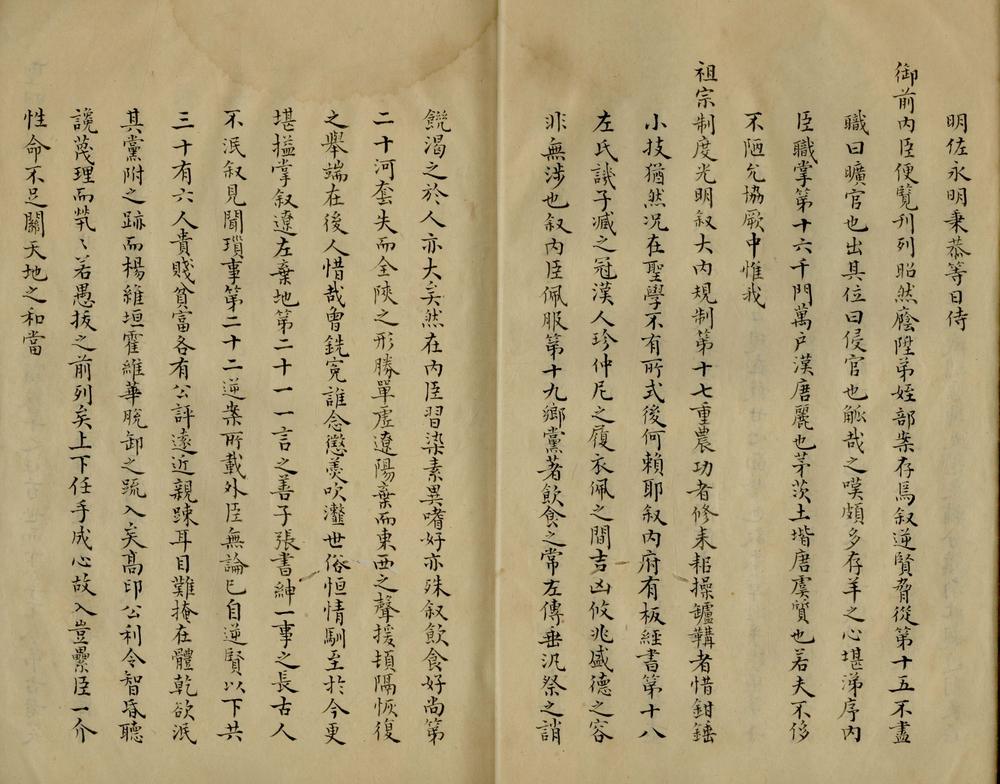 明佐永明秉恭等日侍
御前內臣便覽刋列昭然廕陞弟姪部案存焉叙逆賢脅從第十五不盡
職曰曠官也出其位曰侵官也觚哉之嘆頗多存羊之心堪涕序內
臣職掌第十六千門萬戶漢唐麗也茅茨土堦唐虞質也若夫不侈
不陋允協厥中惟我
祖宗制度光明叙大內規制第十七重農功者修耒耜操鑪鞲者惜鉗錘
小技猶然況在聖學不有所式後何賴耶叙內府有板經書第十八
左氏譏子臧之冠漢人珍仲尼之履衣佩之間吉凶攸兆盛德之容
非無涉也叙內臣佩服第十九鄉黨著飲食之常左傳垂汎祭之誚
饑渴之於人亦大矣然在內臣習染素異嗜好亦殊叙飲食好尚第
二十河套失而全陝之形勝單虛遼陽棄而東西之聲援頓隔恢復
之舉端在後人惜哉曾銑寃誰念懲羹吹虀世俗恒情馴至於今更
堪搤掌叙遼左棄地第二十一一言之善子張書紳一事之長古人
不泯叙見聞瑣事第二十二逆案所載外臣無論已自逆賢以下共
三十有六人貴賤貧富各有公評遠近親踈耳目難掩在體乾欲泯
其黨附之跡而楊維垣霍維華脫卸之䟽入矣高印公利令智昏聽
讒蔑理而煢〻若愚拔之前列矣上下任手成心故入豈纍臣一介
性命不足關天地之和當